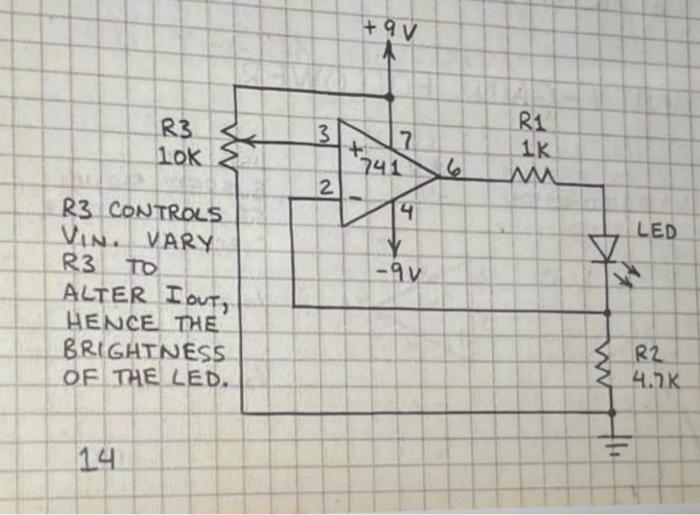 +9V
R3
10K
3
+
7
741
6
2
-
4
-9V
R1
1K
LED
R2
4.7K
R3 CONTROLS
VIN. VARY
R3 TO
ALTER IOUT,
HENCE THE
BRIGHTNESS
OF THE LED.
14